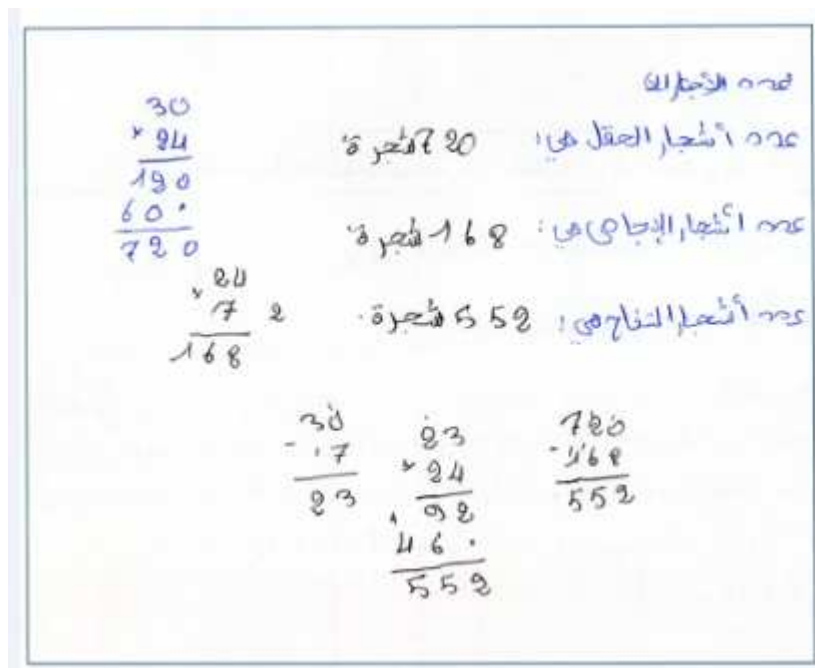 عدد
عدد أشجار الحقل هي: 720 شجرة
عدد أشجار الإجاص هي: 168 شجرة
عدد أشجار التفاح هي: 552 شجرة.
30
× 24
120
60.
720
24
× 7 2
168
30
- 17
23
23
× 24
92
46.
552
720
- 168
552